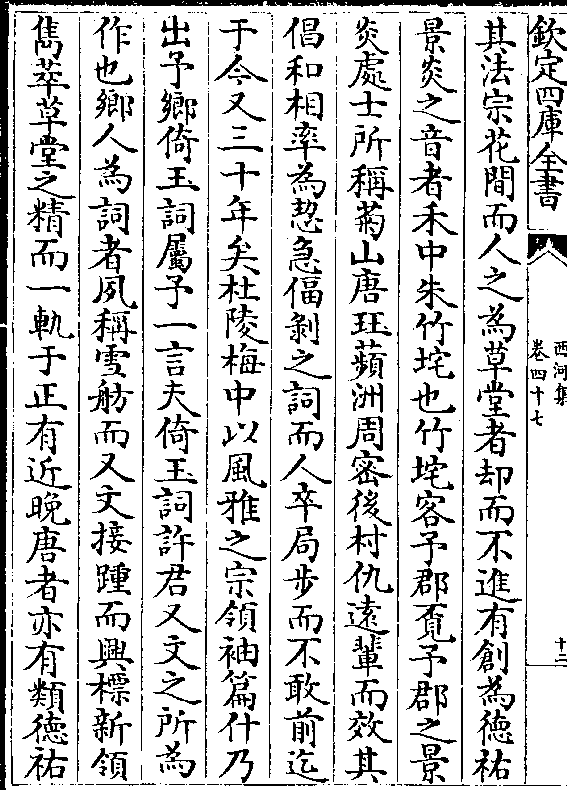 欽定四庫全書
西河集
卷四十七
十二
其法宗花間而人之為草堂者却而不進有創為德祐
景炎之音者禾中朱竹垞也竹垞客予郡覔予郡之景
炎處士所稱菊山唐珏蘋洲周密後村仇遠輩而效其
倡和相率為愸急偪剝之詞而人卒局步而不敢前迄
于今又三十年矣杜陵梅中以風雅之宗領袖篇什乃
出予鄉倚玉詞屬予一言夫倚玉詞許君又文之所為
作也鄉人為詞者夙稱雪舫而又文接踵而興標新領
雋萃草堂之精而一軌于正有近晚唐者亦有類德祐